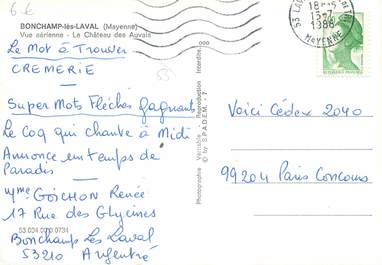 6 €
BONCHAMP-lès-LAVAL (Mayenne)
Vue aérienne - Le Château des Auvais
Le Mot à Trouver
CREMERIE
Super Mots Fléchés gagnants
Le Coq qui chante à Midi
Annonce en temps de
Paradis
Mme GOICHON Renée
17 Rue des Glycines
53 034 0734
Bonchamp Les Laval
53210 Argentré
53
Photographie Véritable - Reproduction Interdite.
© by S.P.A.D.E.M.
53 LAVAL
18H
15-7
1986
MAYENNE
Voici Cédex 2040
99204 Paris Concours